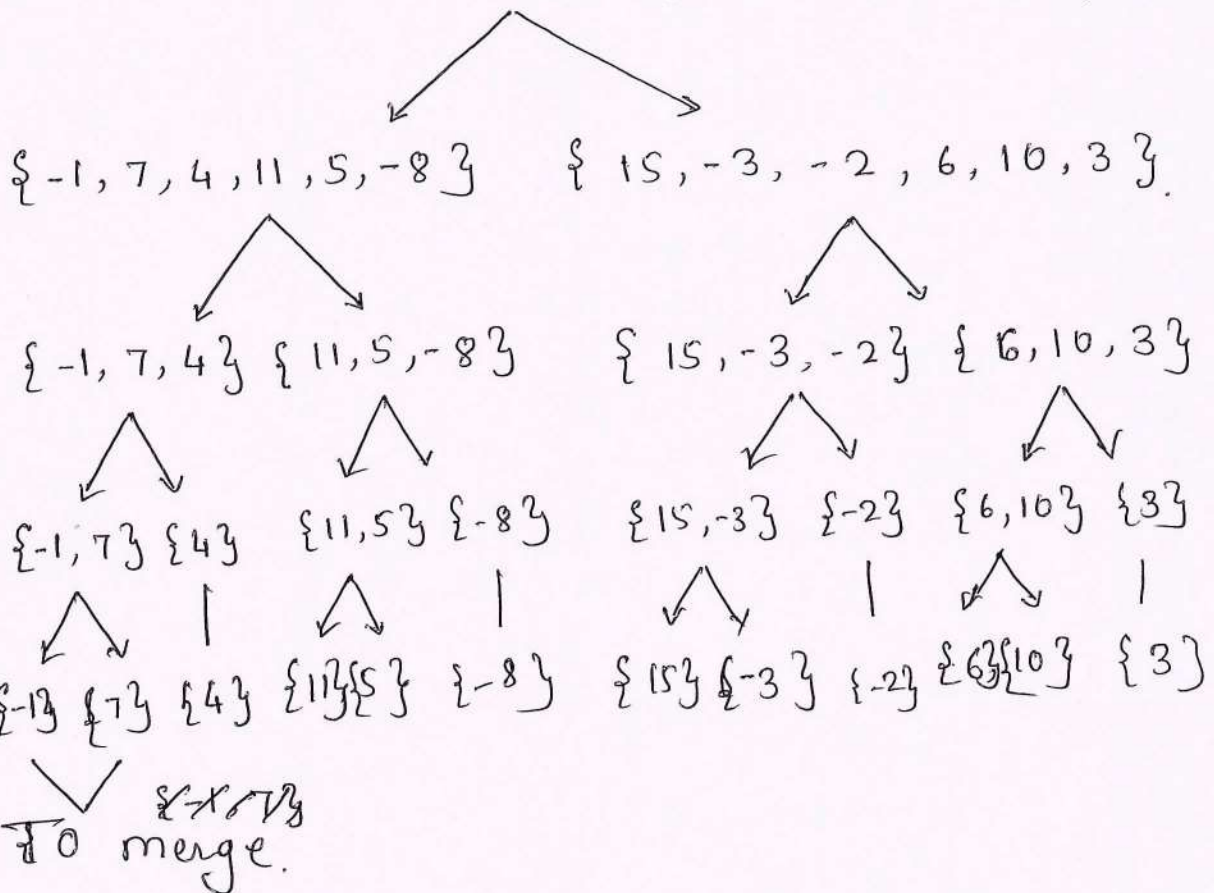 {-1, 7, 4, 11, 5, -8} { 15, -3, -2, 6, 10, 3}.
{-1, 7, 4} {11, 5, -8} { 15, -3, -2} {6, 10, 3}
{-1, 7} {4} {11, 5} {-8} {15, -3} {-2} {6, 10} {3}
{-1} {7} {4} {11}{5} {-8} {15} {-3} {-2} {6}{10} {3}
TO merge.